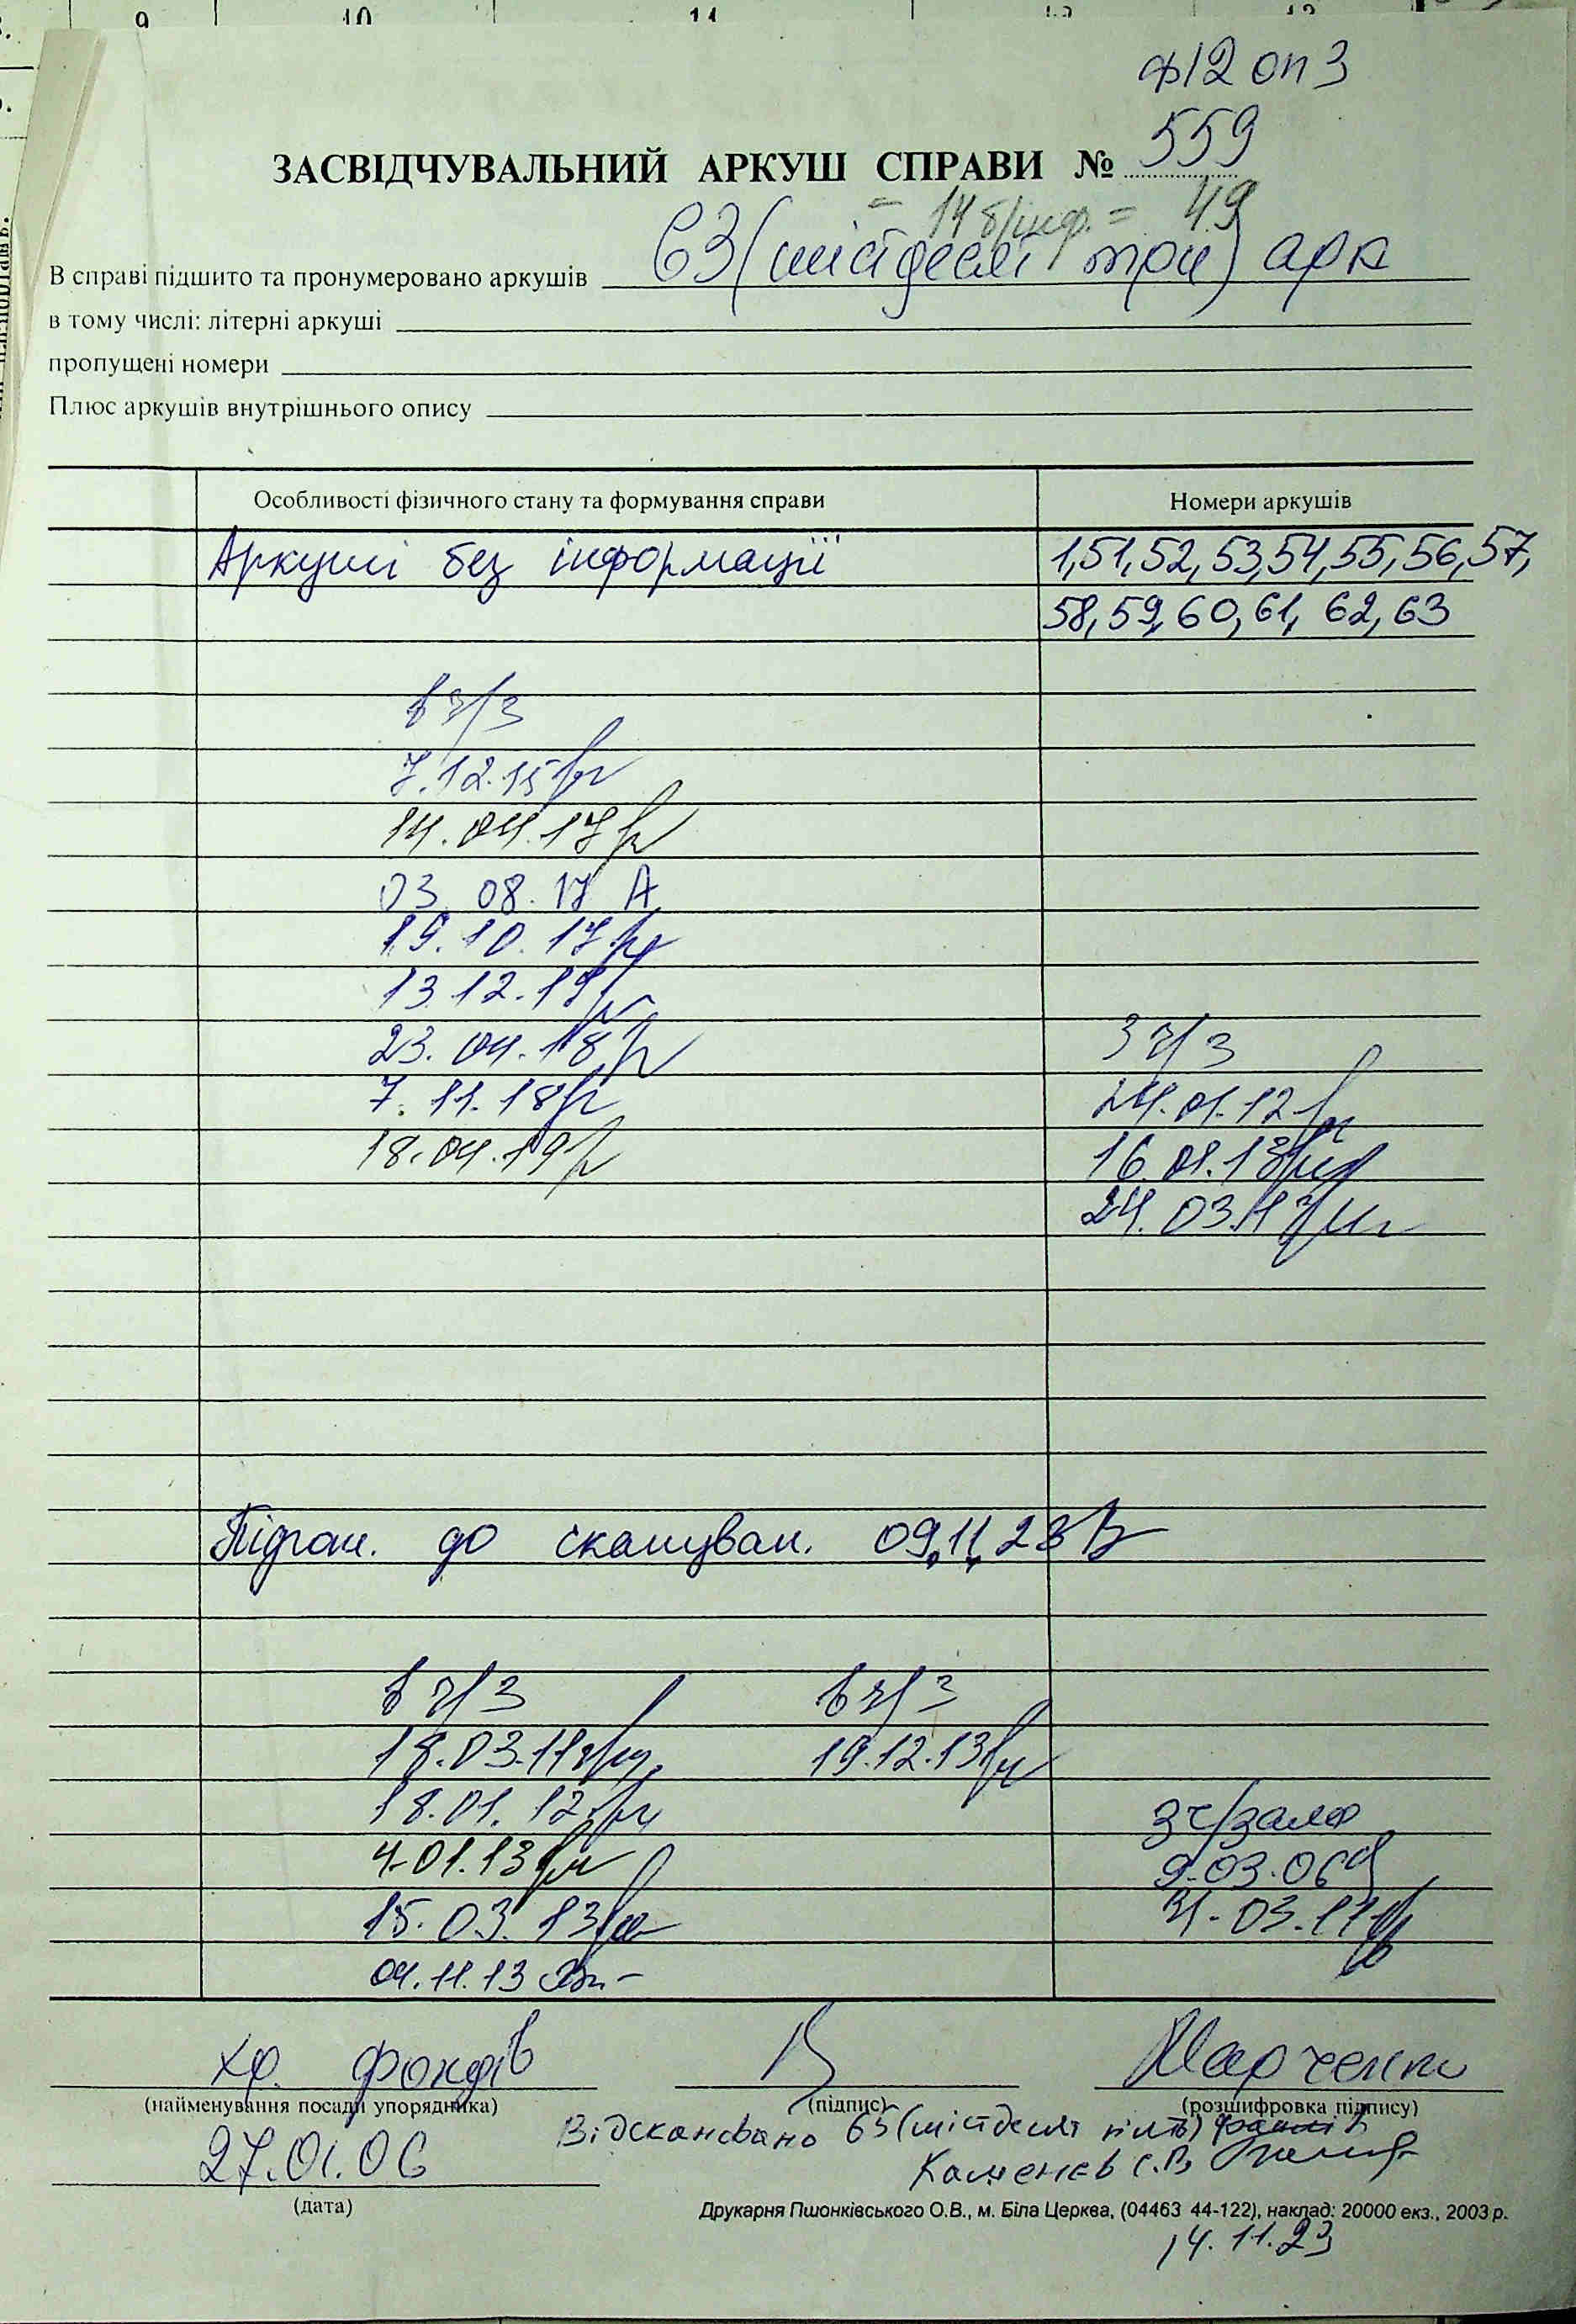 9 10 11 12 13
ф12 оп 3
559
ЗАСВІДЧУВАЛЬНИЙ АРКУШ СПРАВИ №
- 14 б/інф. = 49
В справі підшито та пронумеровано аркушів 63 (шістдесят три) арк
в тому числі: літерні аркуші
пропущені номери
Плюс аркушів внутрішнього опису
Особливості фізичного стану та формування справи Номери аркушів
Аркуші без інформації 1,51,52,53,54,55,56,57,
58,59,60,61,62,63
в ч/з
7.12.15
14.04.17
03.08.17 А
19.10.17
13.12.17
23.04.18 З ч/з
7.11.18 24.01.12
18.04.19 16.01.13
24.03.11
Підгот. до скануван. 09.11.23
в ч/з в ч/з
18.03.11 19.12.13
18.01.12 з ч/залу
4.01.13 9.03.06
15.03.13 31.03.11
04.11.13
хр. фондів Марченко
(найменування посади упорядника) (підпис) (розшифровка підпису)
Відскановано 65 (шістдесят пять) файлів
27.01.06 Каменєв С.В.
(дата) Друкарня Пшонківського О.В., м. Біла Церква, (04463 44-122), наклад: 20000 екз., 2003 р.
14.11.23